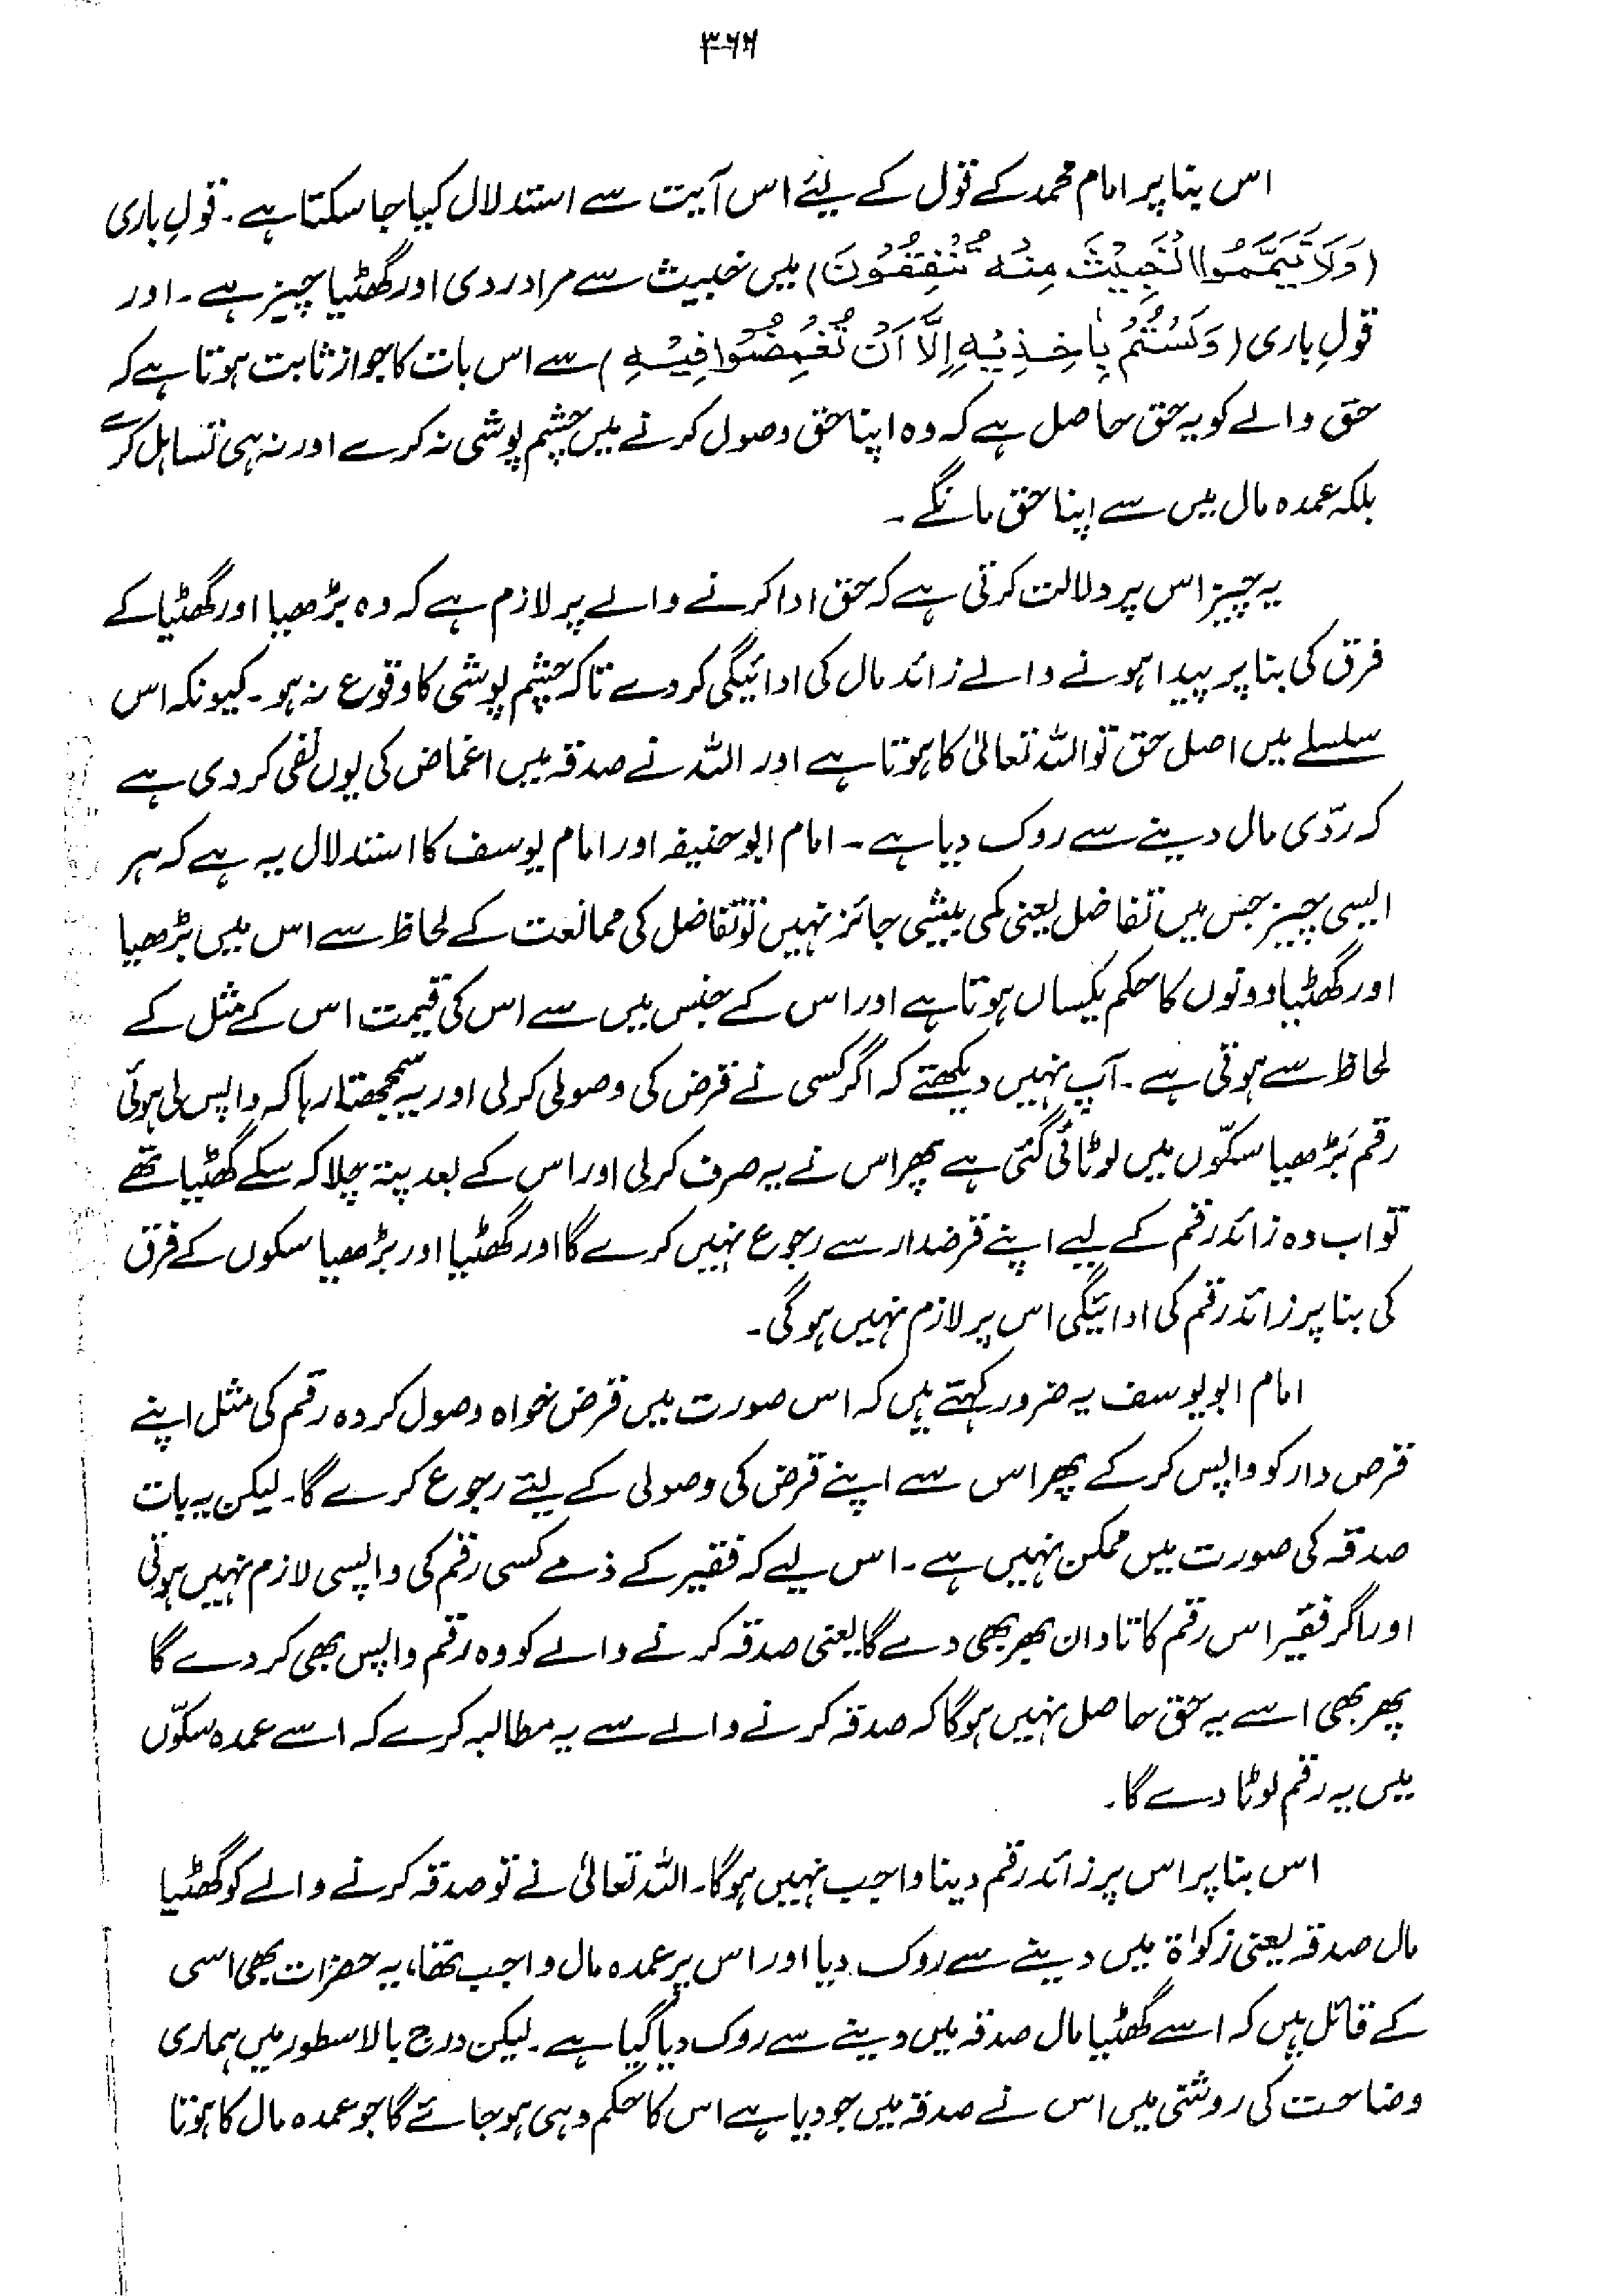 ۳۶۶
اس بنا پر امام محمد کے قول کے لیئے اس آیت سے استدلال کیا جا سکتا ہے۔ قولِ باری
(وَلَا تَيَمَّمُوا الْخَبِيْثَ مِنْهُ تُنْفِقُوْنَ) میں خبیث سے مراد ردی اور گھٹیا چیز ہے۔ اور
قولِ باری (وَلَسْتُمْ بِاٰخِذِيْهِ اِلَّا اَنْ تُغْمِضُوْا فِيْهِ) سے اس بات کا جواز ثابت ہوتا ہے کہ
حق والے کو یہ حق حاصل ہے کہ وہ اپنا حق وصول کرنے میں چشم پوشی نہ کرے اور نہ ہی تساہل کرے
بلکہ عمدہ مال میں سے اپنا حق مانگے۔
یہ چیز اس پر دلالت کرتی ہے کہ حق ادا کرنے والے پر لازم ہے کہ وہ بڑھیا اور گھٹیا کے
فرق کی بنا پر پیدا ہونے والے زائد مال کی ادائیگی کر دے تاکہ چشم پوشی کا وقوع نہ ہو۔ کیونکہ اس
سلسلے میں اصل حق تو اللہ تعالیٰ کا ہوتا ہے اور اللہ نے صدقہ میں اغماض کی یوں نفی کر دی ہے
کہ ردّی مال دینے سے روک دیا ہے۔ امام ابو حنیفہ اور امام یوسف کا استدلال یہ ہے کہ ہر
ایسی چیز جس میں تفاضل یعنی کمی بیشی جائز نہیں تو تفاضل کی ممانعت کے لحاظ سے اس میں بڑھیا
اور گھٹیا دونوں کا حکم یکساں ہوتا ہے اور اس کے جنس میں سے اس کی قیمت اس کے مثل کے
لحاظ سے ہوتی ہے۔ آپ نہیں دیکھتے کہ اگر کسی نے قرض کی وصولی کر لی اور یہ سمجھتا رہا کہ واپس لی ہوئی
رقم بڑھیا سکّوں میں لوٹائی گئی ہے پھر اس نے یہ صرف کر لی اور اس کے بعد پتہ چلا کہ سکے گھٹیا تھے
تو اب وہ زائد رقم کے لیے اپنے قرضدار سے رجوع نہیں کرے گا اور گھٹیا اور بڑھیا سکوں کے فرق
کی بنا پر زائد رقم کی ادائیگی اس پر لازم نہیں ہوگی۔
امام ابو یوسف یہ ضرور کہتے ہیں کہ اس صورت میں قرض خواہ وصول کردہ رقم کی مثل اپنے
قرض دار کو واپس کر کے پھر اس سے اپنے قرض کی وصولی کے لیئے رجوع کرے گا۔ لیکن یہ بات
صدقہ کی صورت میں ممکن نہیں ہے۔ اس لیے کہ فقیر کے ذمے کسی رقم کی واپسی لازم نہیں ہوتی
اور اگر فقیر اس رقم کا تاوان بھر بھی دے گا یعنی صدقہ کرنے والے کو وہ رقم واپس بھی کر دے گا
پھر بھی اسے یہ حق حاصل نہیں ہوگا کہ صدقہ کرنے والے سے یہ مطالبہ کرے کہ اسے عمدہ سکّوں
میں یہ رقم لوٹا دے گا۔
اس بنا پر اس پر زائد رقم دینا واجب نہیں ہوگا۔ اللہ تعالیٰ نے تو صدقہ کرنے والے کو گھٹیا
مال صدقہ یعنی زکوٰۃ میں دینے سے روک دیا اور اس پر عمدہ مال واجب تھا، یہ حضرات بھی اسی
کے قائل ہیں کہ اسے گھٹیا مال صدقہ میں دینے سے روک دیا گیا ہے۔ لیکن درج بالا سطور میں ہماری
وضاحت کی روشنی میں اس نے صدقہ میں جو دیا ہے اس کا حکم وہی ہو جائے گا جو عمدہ مال کا ہوتا